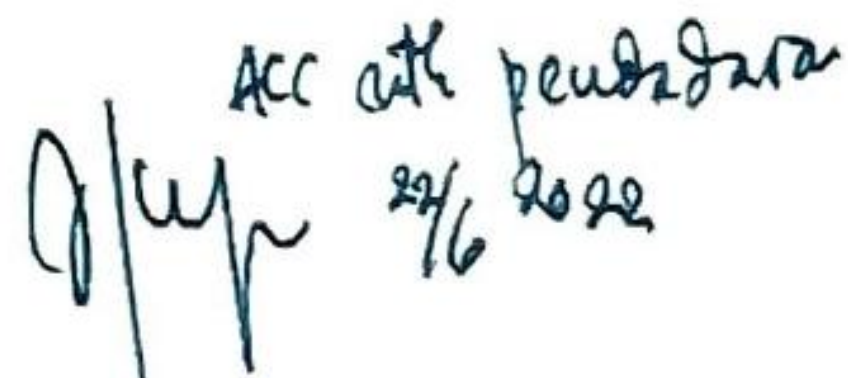 ACC utk pendadaran
22/6 2022